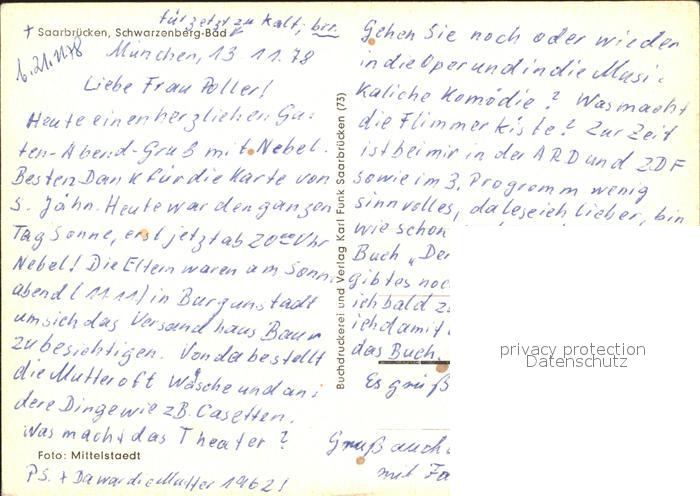 für jetzt zu kalt; brr.
+ Saarbrücken, Schwarzenberg-Bad
b. 21.11.78
München, 13 11.78
Liebe Frau Poller!
Heute einen herzlichen Gu-
ten-Abend-Gruß mit Nebel.
Besten Dank für die Karte von
S. Jähn. Heute war den ganzen
Tag Sonne, erst jetzt ab 20⁰⁰ Uhr
Nebel! Die Eltern waren am Sonn-
abend (11 11) in Burgunstadt
um sich das Versandhaus Baur
zu besichtigen. Von da bestellt
die Mutter oft Wäsche und an-
dere Dinge wie z B. Casetten.
Was macht das Theater?
Foto: Mittelstaedt
PS. + Da war die Mutter 1962!
Buchdruckerei und Verlag Karl Funk Saarbrücken (73)
Gehen Sie noch oder wieder
in die Oper und in die Musi-
kaliche Komödie? Was macht
die Flimmerkiste? Zur Zeit
ist bei mir in der ARD und ZDF
sowie im 3. Programm wenig
sinnvolles, da lese ich lieber, bin
wie schon
Buch „Der
gibt es noc
ich bald z
ich damit
das Buch.
Es grüß
Gruß auch
mit Fa
privacy protection
Datenschutz